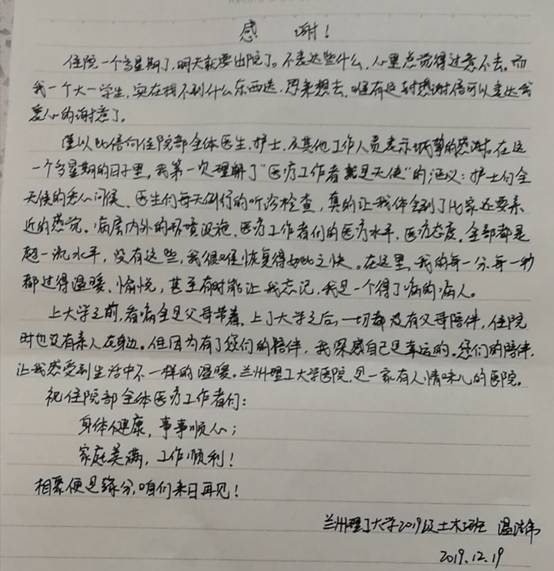 感 谢！
住院一个多星期了，明天就要出院了。不表达些什么，心里总觉得过意不去。而
我一个大一学生，实在找不到什么东西送，思来想去，唯有这封感谢信可以表达我
衷心的谢意了。
谨以此信向住院部全体医生、护士、及其他工作人员表示诚挚的感谢，在这
一个多星期的日子里，我第一次理解了“医疗工作者就是天使”的涵义：护士们全
天候的关心问候、医生们每天例行的听诊检查，真的让我体会到了比家还要亲
近的感觉。病房内外的环境设施、医疗工作者们的医疗水平、医疗态度，全部都是
超一流水平，没有这些，我很难恢复得如此之快。在这里，我的每一分、每一秒
都过得温暖、愉悦，甚至有时能让我忘记，我是一个得了病的病人。
上大学之前，看病全是父母带着，上了大学之后，一切都没有父母陪伴，住院
时也没有亲人在身边。但因为有了您们的陪伴，我深感自己是幸运的。您们的陪伴，
让我感受到生活中不一样的温暖。兰州理工大学医院，是一家有人情味儿的医院。
祝住院部全体医疗工作者们：
身体健康，事事顺心；
家庭美满，工作顺利！
相聚便是缘分，咱们来日再见！
兰州理工大学2019级土木班 温
2019.12.19